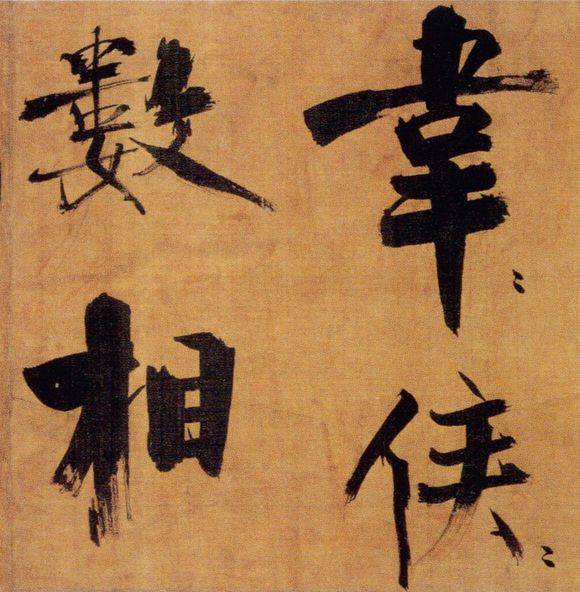 韋〻侯〻
數相